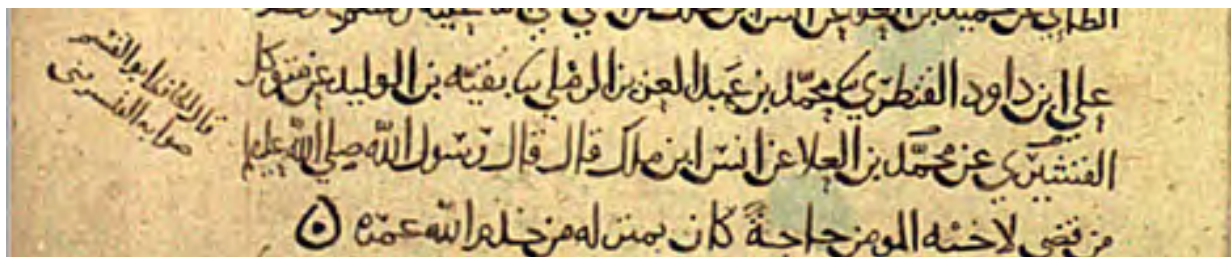 علي ابن داود القنطري نا محمد بن عبد العزيز الرملي نا بقية بن الوليد عن متوكل
القنشيري عن محمد بن العلا عن انس ابن ملك قال قال رسول الله صلي الله عليه
من قضي لاخيه المومن حاجة كان بمنزلة من خدم الله عمره
قال الحافظ ابو القسم
صوابه القنسريني